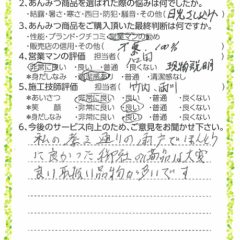 2.あんみつ商品を選ばれた際の悩みは何でしたか。
・結露・暑さ・寒さ・西日・防犯・騒音・その他(
3.あんみつ商品をご購入頂いた最終判断は何ですか。
・性能・ブランド・クチコミ・営業マンの勧め
販売店の信用・その他(
4.営業マンの評価 担当者(石田
非常に良い ・良い ・普通 ・良くない 現場説明
*身だしなみ 清潔感あり ・普通 ・清潔感なし
5.施工技師評価 担当者(竹内・西川
*あいさつ ・非常に良い ・良い ・普通 ・良くない
*笑顔 ・非常に良い ・良い ・普通 ・良くない
*身だしなみ ・非常に良い ・良い ・普通 ・良くない
6.今後のサービス向上のため、ご意見をお聞かせ下さい。
私の考え通りの雨戸でほんとう
に良かった 御社の商品は大変
良い品物が多いです